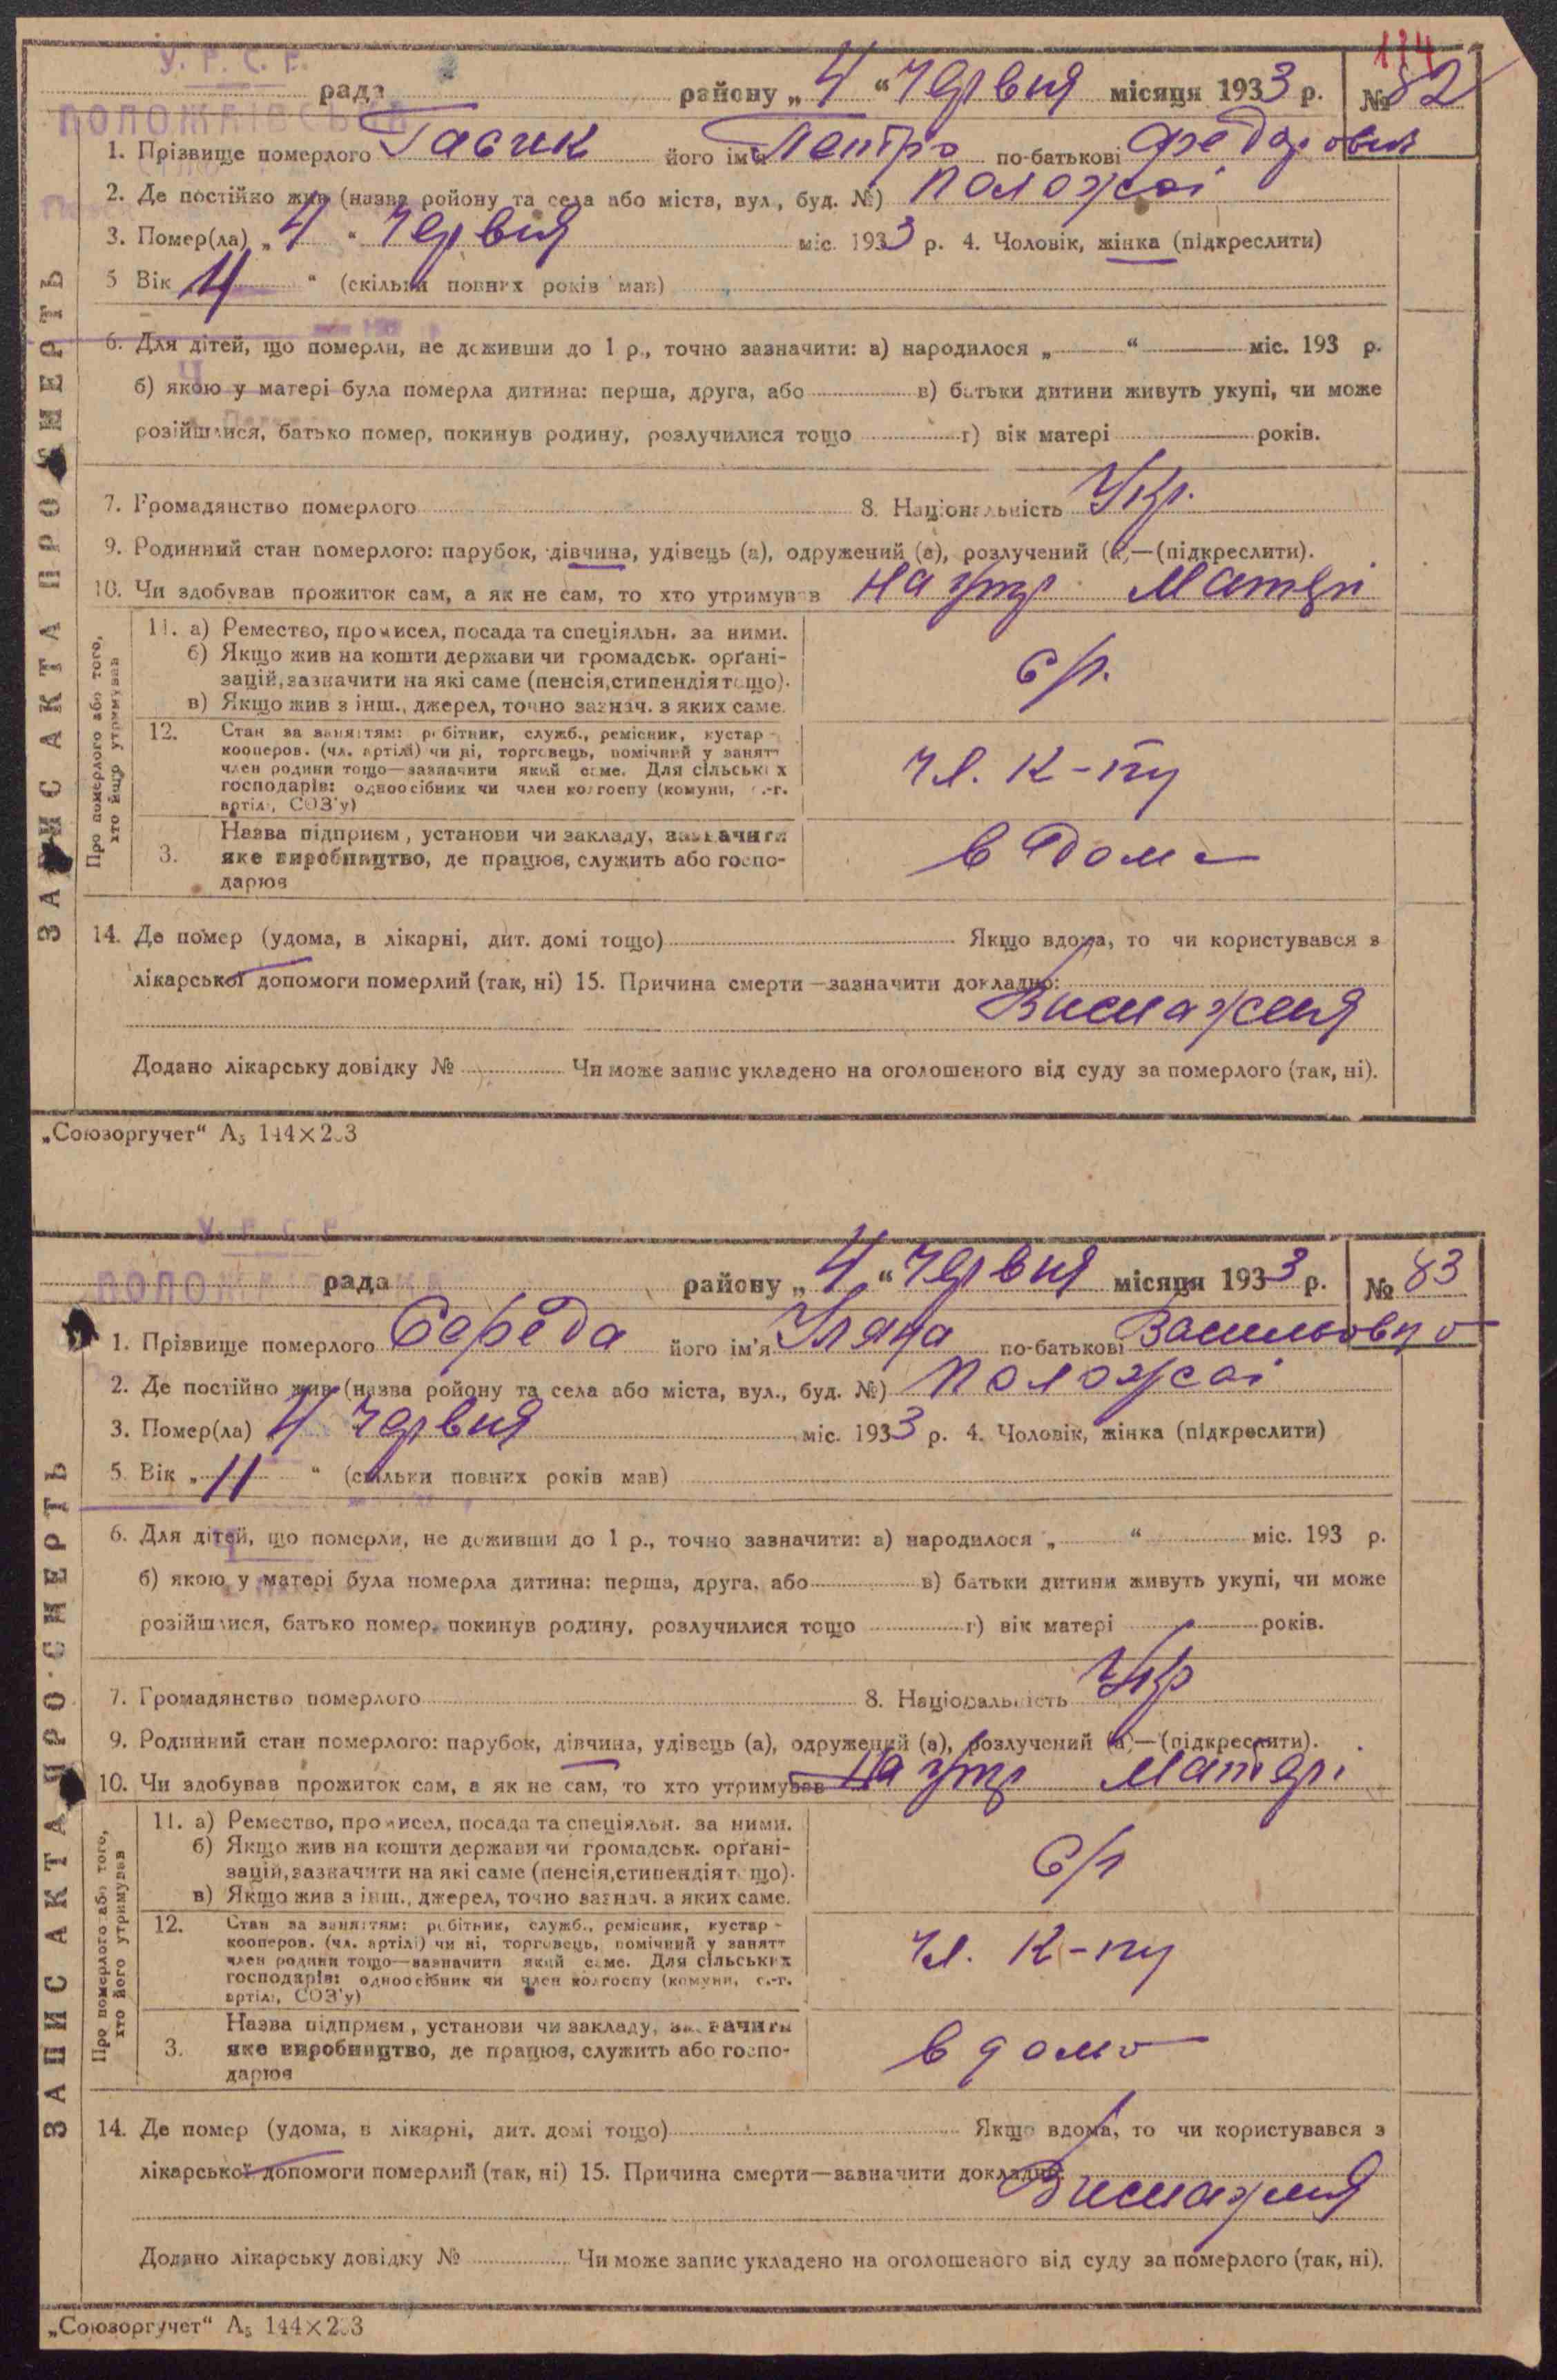 У. Р. С. Р.
114
рада району „4“ Червня місяця 1933 р. №82
ПОЛОЖАЇВСЬКА
1. Прізвище померлого Гасик його ім'я Пентро по-батькові Федорович
2. Де постійно жив (назва ройону та села або міста, вул., буд. №) Положаі
3. Помер(ла) „4“ Червня міс. 1933 р. 4. Чоловік, жінка (підкреслити)
5 Вік 4 “ (скільки повних років мав)
6. Для дітей, що померли, не доживши до 1 р., точно зазначити: а) народилося „ “ міс. 193 р.
б) якою у матері була померла дитина: перша, друга, або в) батьки дитини живуть укупі, чи може
розійшлися, батько помер, покинув родину, розлучилися тощо г) вік матері років.
7. Громадянство померлого 8. Національність Укр.
9. Родинний стан померлого: парубок, дівчина, удівець (а), одружений (а), розлучений (а)—(підкреслити).
10. Чи здобував прожиток сам, а як не сам, то хто утримував На утр. Матері
Про померлого або того, хто його утримував
11. а) Ремество, промисел, посада та спеціяльн. за ними.
б) Якщо жив на кошти держави чи громадськ. орґані-
зацій, зазначити на які саме (пенсія, стипендія тощо).
в) Якщо жив з інш., джерел, точно зазнач. з яких саме.
с/г.
12. Стан за заняттям: робітник, служб., ремісник, кустар -
кооперов. (чл. артілі) чи ні, торговець, помічний у занятт
член родини тощо—зазначити який саме. Для сільських
господарів: одноосібник чи член колгоспу (комуни, с.-г.
артілі, СОЗ'у)
чл. к-гпу
3. Назва підприєм, установи чи закладу, зазначити
яке виробництво, де працює, служить або госпо-
дарює
в дома
14. Де помер (удома, в лікарні, дит. домі тощо) Якщо вдома, то чи користувався з
лікарської допомоги померлий (так, ні) 15. Причина смерти—зазначити докладно:
Виснаження
Додано лікарську довідку № Чи може запис укладено на оголошеного від суду за померлого (так, ні).
ЗАПИС АКТА ПРО СМЕРТЬ
„Союзоргучет“ А5 144×203
У. Р. С. Р.
рада району „4“ Червня місяця 1933 р. № 83
1. Прізвище померлого Середа його ім'я Уляна по-батькові Васильовно
2. Де постійно жив (назва ройону та села або міста, вул., буд. №) Положаі
3. Помер(ла) 4 червня міс. 1933 р. 4. Чоловік, жінка (підкреслити)
5. Вік „11“ (скільки повних років мав)
6. Для дітей, що померли, не доживши до 1 р., точно зазначити: а) народилося „ “ міс. 193 р.
б) якою у матері була померла дитина: перша, друга, або в) батьки дитини живуть укупі, чи може
розійшлися, батько помер, покинув родину, розлучилися тощо г) вік матері років.
7. Громадянство померлого 8. Національність Укр
9. Родинний стан померлого: парубок, дівчина, удівець (а), одружений (а), розлучений (а)—(підкреслити).
10. Чи здобував прожиток сам, а як не сам, то хто утримував На утр Матері
Про померлого або того, хто його утримував
11. а) Ремество, промисел, посада та спеціяльн. за ними.
б) Якщо жив на кошти держави чи громадськ. орґані-
зацій, зазначити на які саме (пенсія, стипендія тощо).
в) Якщо жив з інш., джерел, точно зазнач. з яких саме.
с/г
12. Стан за заняттям: робітник, служб., ремісник, кустар -
кооперов. (чл. артілі) чи ні, торговець, помічний у занятт
член родини тощо—зазначити який саме. Для сільських
господарів: одноосібник чи член колгоспу (комуни, с.-г.
артілі, СОЗ'у)
чл. к-гпу
3. Назва підприєм, установи чи закладу, зазначити
яке виробництво, де працює, служить або госпо-
дарює
в дома
14. Де помер (удома, в лікарні, дит. домі тощо) Якщо вдома, то чи користувався з
лікарської допомоги померлий (так, ні) 15. Причина смерти—зазначити докладно:
Виснаження
Додано лікарську довідку № Чи може запис укладено на оголошеного від суду за померлого (так, ні).
ЗАПИС АКТА ПРО СМЕРТЬ
„Союзоргучет“ А5 144×203